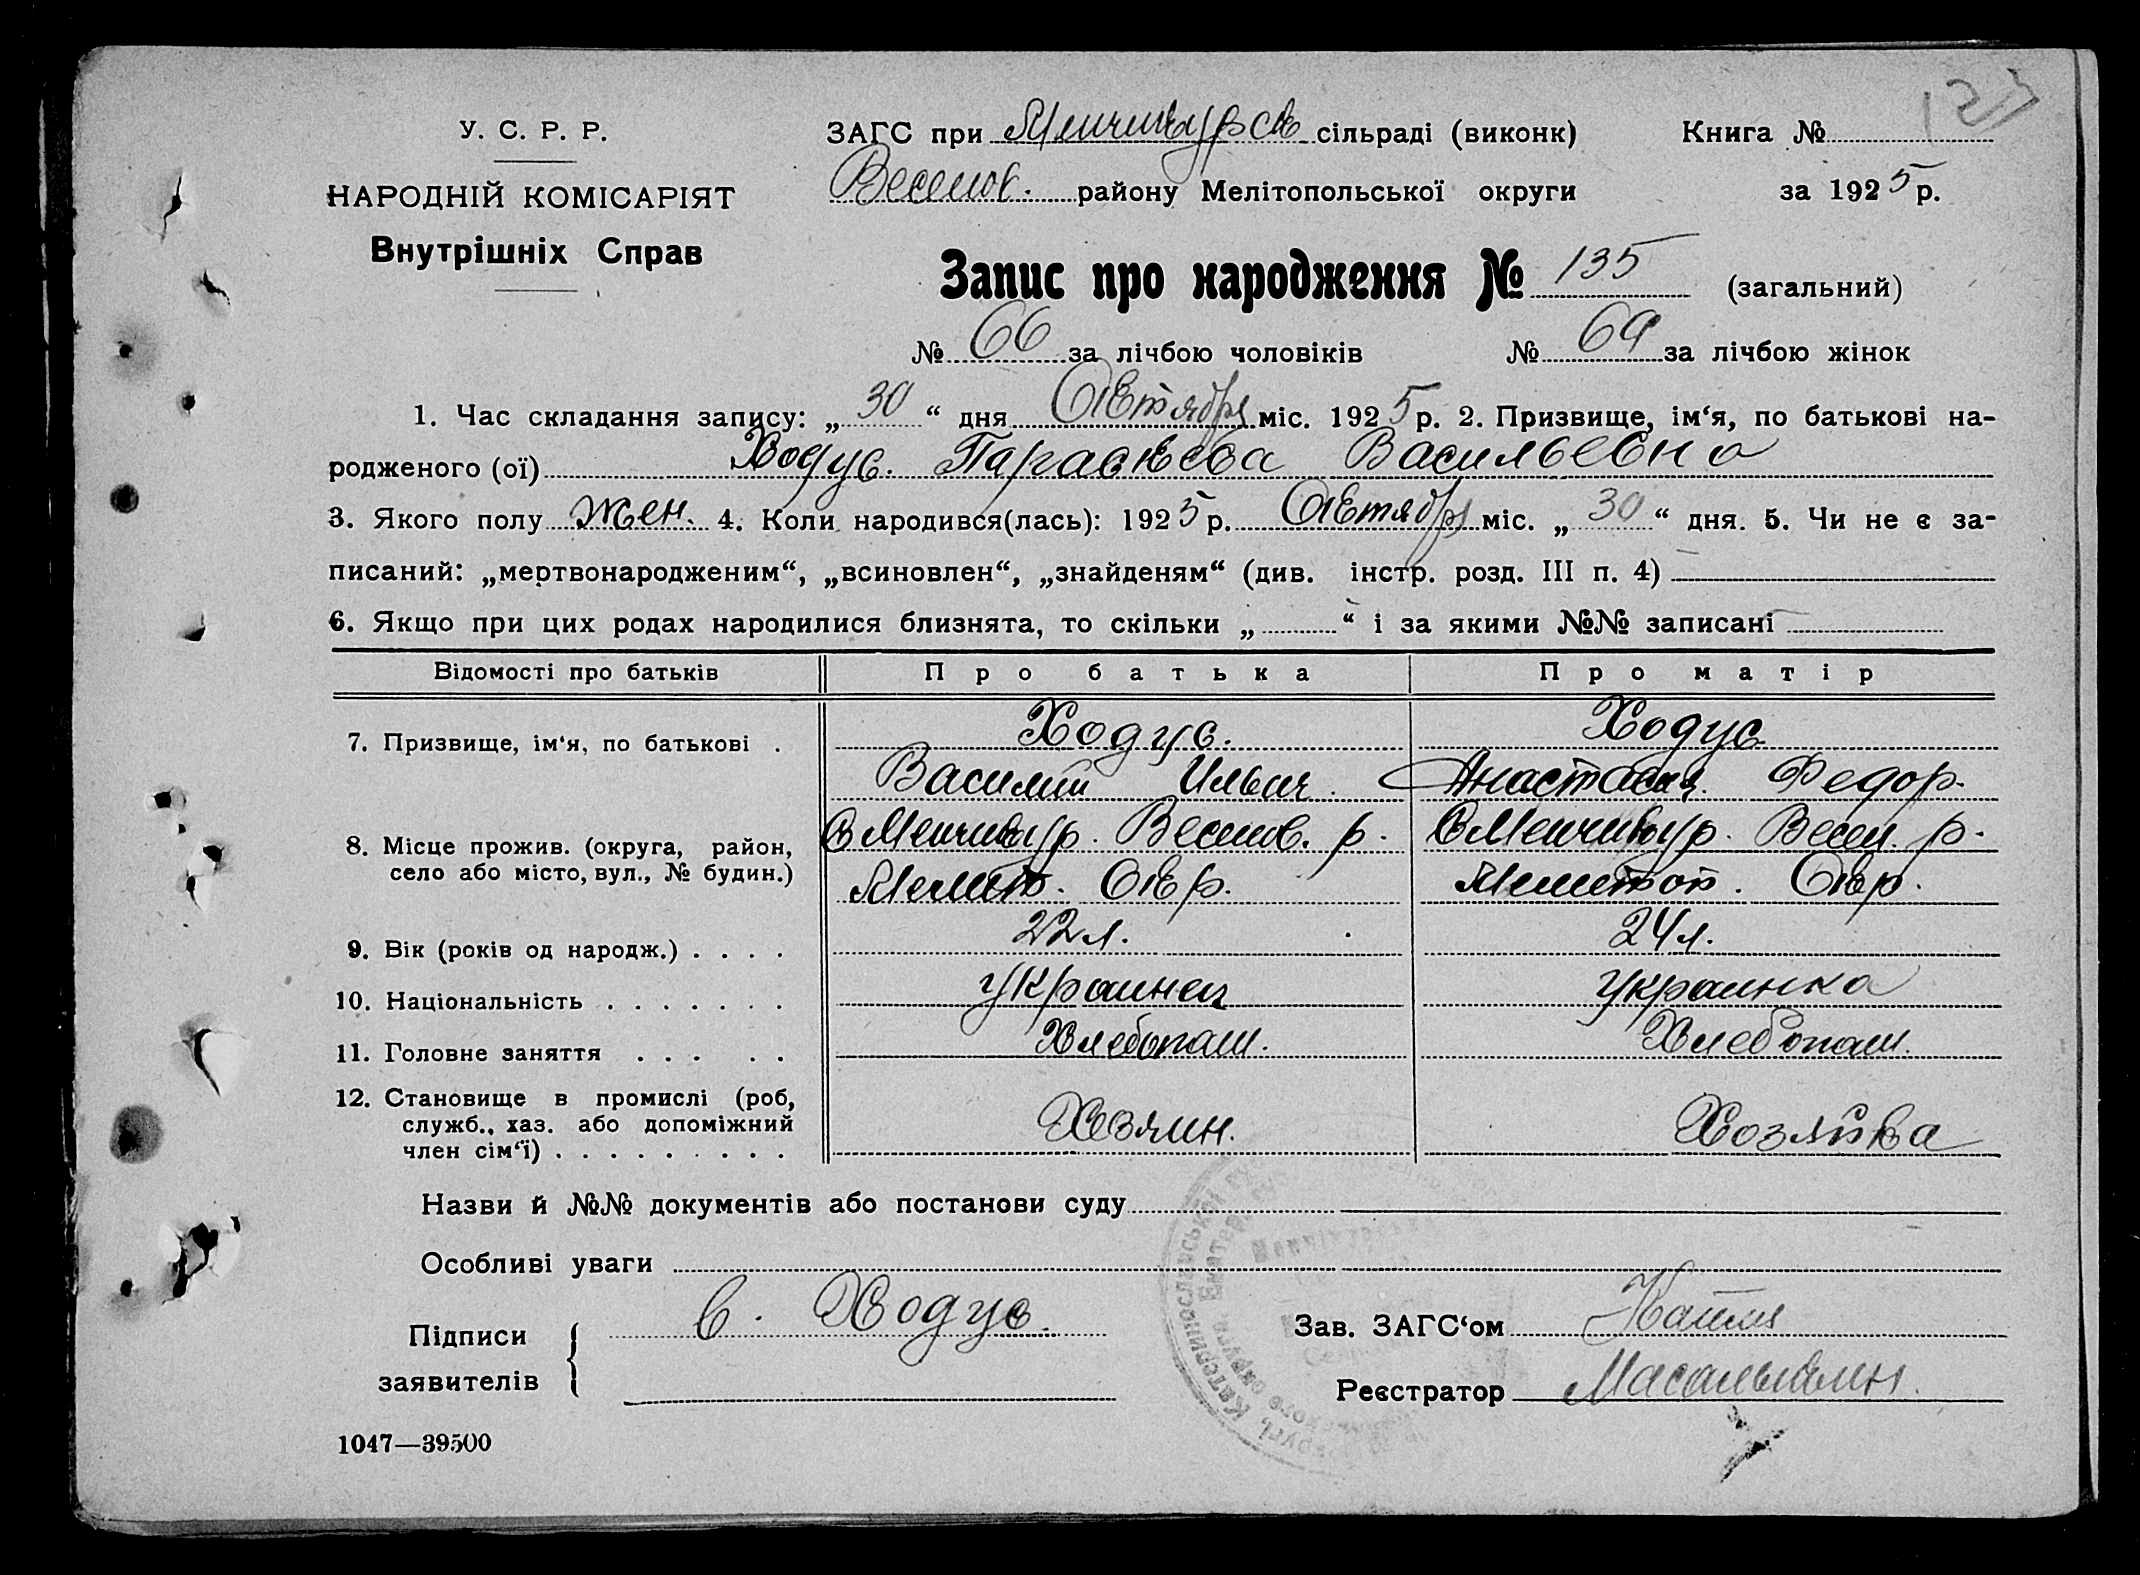 127
У. С. Р. Р.
НАРОДНІЙ КОМІСАРІЯТ
Внутрішніх Справ
ЗАГС при Менчикурск сільраді (виконк) Книга №
Веселов. району Мелітопольської округи за 1925 р.
Запис про народження № 135 (загальний)
№ 66 за лічбою чоловіків № 69 за лічбою жінок
1. Час складання запису: „30“ дня Октября міс. 1925 р. 2. Призвище, ім'я, по батькові на-
родженого (ої) Ходус. Парасковья Васильевна
3. Якого полу жен. 4. Коли народився(лась): 1925 р. Октября міс. „30“ дня. 5. Чи не є за-
писаний: „мертвонародженим“, „всиновлен“, „знайденям“ (див. інстр. розд. III п. 4)
6. Якщо при цих родах народилися близнята, то скільки „ “ і за якими №№ записані
Відомості про батьків Про батька Про матір
7. Призвище, ім'я, по батькові . Ходус. Ходус
Василий Ильич. Анастасия. Федор.
8. Місце прожив. (округа, район, с Менчикур. Веселов. р. с Менчикур. Весел. р.
село або місто, вул., № будин.) Мелит. Окр. Мелитоп. Окр.
9. Вік (років од народж.) . . . . 22 л. 24 л.
10. Національність . . . . . . . украинец украинка
11. Головне заняття . . . . . Хлебопаш. Хлебопаш.
12. Становище в промислі (роб,
служб., хаз. або допоміжний Хозяин. Хозяйка
член сім'ї) . . . . . . . . .
Назви й №№ документів або постанови суду
Особливі уваги
Підписи заявителів В. Ходус.
Зав. ЗАГС'ом
Реєстратор
1047—39500